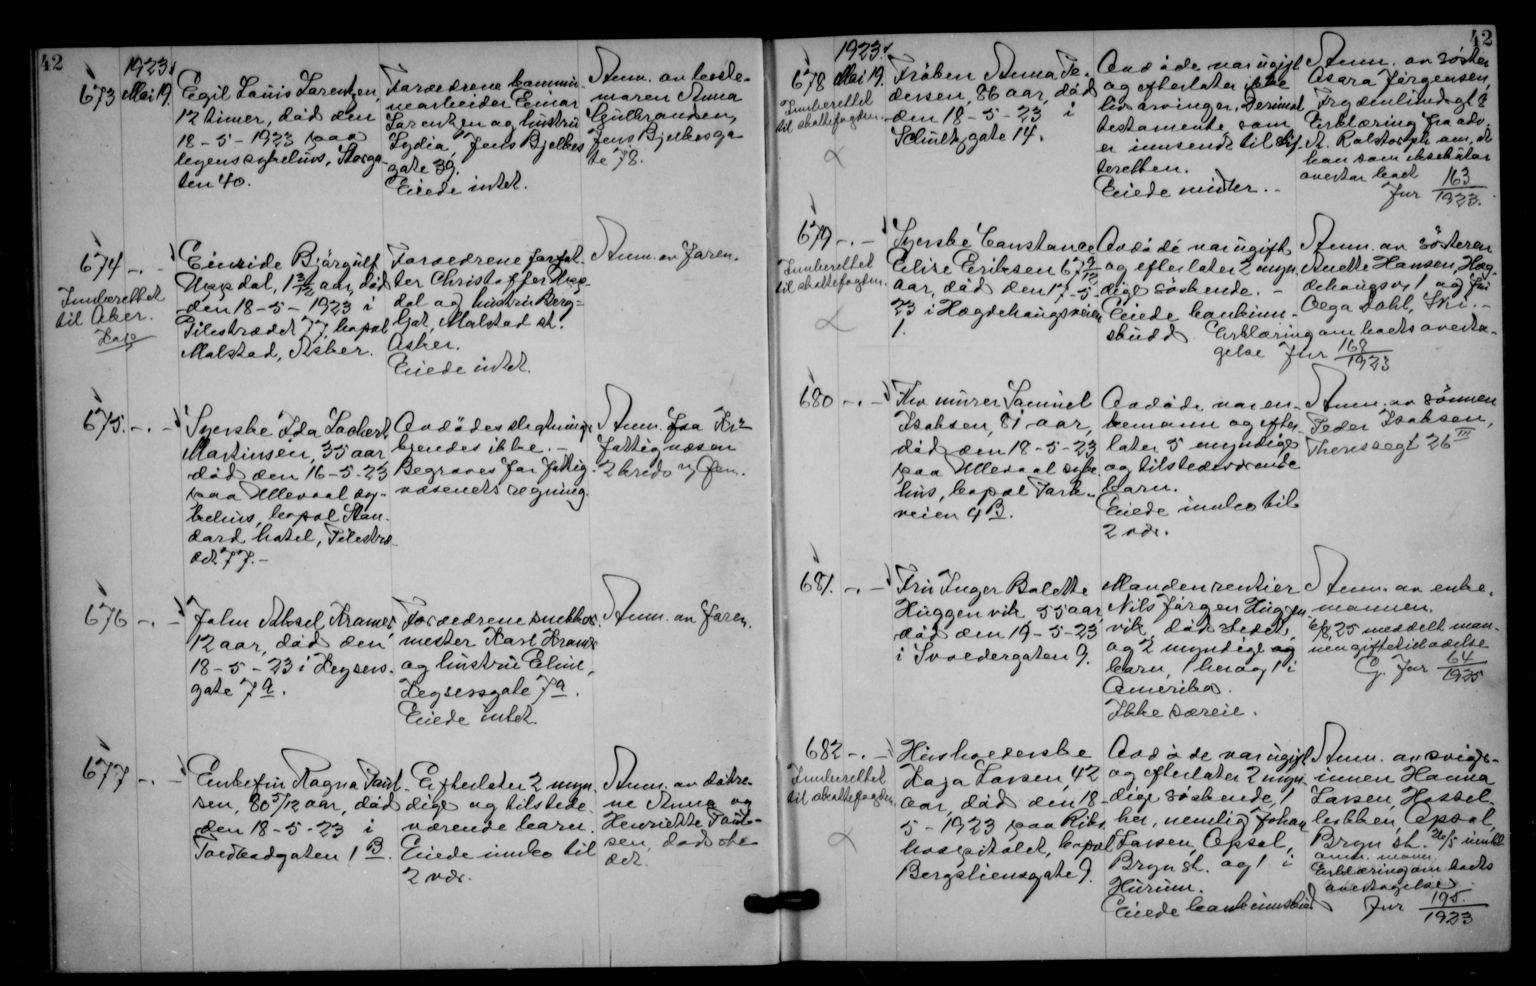 42
1923.
673 Mai 19.
Egil Louis Larentzen,
12 timer, död den
18-5-1923 paa
legens sykehus, Storga-
ten 40.
Foræedrene kommu-
nearbeider Einar
Larentzen og hustru
Lydia, Jens Bjelkes
gate 39.
Eiede intet.
Anm. av beste-
moren Anna
Gulbrandsen,
Jens Bjelkesga-
te 78.
674 -.-
Innberettet
til Aker.
Eivide Bjørgulf
Uppdal, 1 3/12 aar, död
den 18-5-1923 i
Pilestrædet 77, bopæl
Malstad, Asker.
Foræedrene forfat-
ter Christoffer Upp-
dal og hustru Berg-
ljot, Malstad st.
Asker.
Eiede intet.
Anm. av faren.
675. -.-
Syerske Ida
Martinsen, 35 aar
död den 16-5-23
paa Ullevaal sy-
kehus, bopæl Stan-
dard hotel, Pilestræ-
det 77.-
Avdödes slegtninge
kjendes ikke.-
Begraves for fattig-
væsenets regning.
Anm. fra Kr.
Fattigvæsen
676 -.-
John Aksel Kramer
12 aar, död den
18-5-23 i Jessens-
gate 7a.
Foræedrene snekker-
mester Karl Kramer
og hustru Eline,
gate 7a.
Eiede intet.
Anm. av faren.
677 -.-
Enkefru Ragna Paul-
sen, 80 5/12 aar, död
den 18-5-23 i
Toldbodgaten 1 B.
Efterlater 2 myn-
dige og tilstede-
værende barn.
Eiede innbo til
2 vær.
Anm. av dötre-
ne Anna og
Henriette Paul-
sen, död ste-
det.
42
1923.
678 Mai 19.
Innberettet
til skattefogden.
Fröken Anna Pe-
dersen, 86 aar, död
den 18-5-23 i
Schultzgate 14.
Avdöde var ugift
og efterlater ikke
livsarvinger, derimot
testamente, som
er innsendt til skif-
teretten.
Eiede midler.-
Anm. av söster
Osara Jørgensen,
Frydenlundsgt 2
Erklæring fra adv.
at
han som eksekutor
overtar boet
Jnr 163/1923.
679 -.-
Innberettet
til skattefogden.
Syerske Constance
Elise Eriksen 67 9/12
aar, död den 17-5-
23 i Hægdehaugsveien
1.
Avdöde var ugift
og efterlater 2 myn-
dige söskende.-
Eiede bankinn-
skudd
Anm. av sösteren
Anette Hansen, Hæg-
dehaugsv. 1 og fru
Olga Dahl, Ski.-
Erklæring om boets overta-
gelse Jnr 168/1923
680 -.-
Fhv murer Samuel
Isaksen, 81 aar,
död den 18-5-23
paa Ullevaal syke-
hus, bopæl Park-
veien 4 B.
Avdöde var en-
kemann og efter-
later 5 myndige
og tilstedeværende
barn.
Eiede innbo til
2 vær.
Anm. av sönnen
Peder Isaksen,
Theresesgt 26 III
681. -.-
Fru Inger Bolette
Huggenvik, 55 aar
död den 19-5-23
i Svoldergaten 9.
Manden rentier
Nils Jørgen Huggen-
vik, död stedet,
og 2 myndige
barn, 1 her og 1 i
Amerika.
Ikke særeie.
Anm. av enke-
mannen.
6/8 25 meddelt man-
nen giftetilladelse
G. Jnr 64/1925
682 -.-
Innberettet
til skattefogden.
Husholderske
Kaja Larsen, 42
aar, död den 18-
5-1923 paa Riks-
hospitalet, bopæl
Bergsliensgate 9.
Avdöde var ugift
og efterlater 2 myn-
dige söskende, 1
her, nemlig Johan
Larsen, Opsal,
Bryn st. og 1 i
Hurum.
Eiede bankinnskud
Anm. av svige-
innen Hanna
Larsen, Hassel-
bakken, Opsal,
Bryn st.
Erklæring om boets
overtagelse
Jnr 195/1923